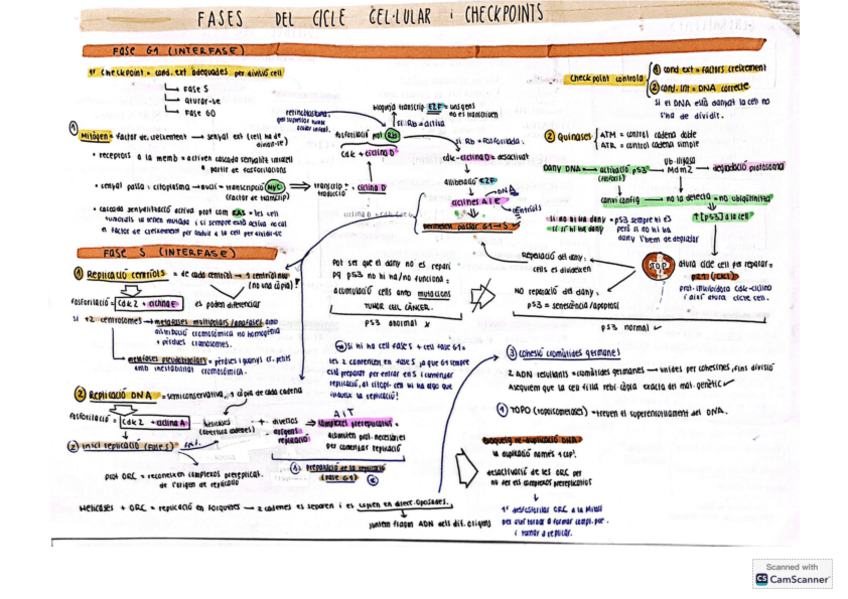 FASES DEL CICLE CEL·LULAR i CHECKPOINTS
FASE G1 (INTERFASE)
1r Checkpoint = cond. ext adequades per divisió cel
Fase S
aturar-se
Fase G0
Checkpoint controla
① cond ext = factors creixement
② cond. int = DNA correcte
si el DNA està danyat la cel no
s'ha de dividir.
retinoblastoma
bloqueja transcrip. E2F = uns gens
no es transcriuen
si Rb = activa
fosforilació prot Rb
si Rb = fosforilada:
cdk + ciclina D
cdk-ciclina D = desactivat
alliberació E2F
ciclines A i E
DNA
centríols
permeten passar G1 → S
① Mitògen = factor de creixement → senyal ext (cel ha de
dividir-se)
• receptors a la memb = activen cascada senyalitz intracel
a partir de fosforilacions
• senyal passa: citoplasma → nucli = transcripció MYC
(factor de transcrip)
transcrip
traducció
= ciclina D
• cascada senyalització activa prot com RAS = les cel
tumorals la tenen mutada i si sempre està activa no cal
el factor de creixement per induir a la cel per dividir-se
② Quinases
ATM = control cadena doble
ATR = control cadena simple
Dany DNA → activació p53
(fosforil)
ub-lligasa
Mdm2 → degradació proteosoma
canvi config → no la detecta = no ubiquitinitza
↑[p53] a la cel
si no hi ha dany = p53 sempre hi és
si sí hi ha dany
però si no hi ha
dany l'hem de degradar
STOP
atura cicle cel per reparar =
p21 (CKI)
prot. inhibidora cdk-ciclina
i així atura cicle cel.
Reparació del dany:
cels es divideixen
NO reparació del dany:
p53 = senescència/apoptosi
p53 normal ✓
Pot ser que el dany no es repari
pq p53 no hi ha/no funciona =
acumulació cels amb mutacions
TUMOR CEL CÀNCER.
p53 anormal x
FASE S (INTERFASE)
① Replicació centríols = de cada centríol → 1 centríol nou
(no una còpia)!
Fosforilació = cdk2 + ciclina E
es poden diferenciar
si +2 centrosomes → metafases multipolars/anafases amb
distribució cromosòmica no homogènia
+ pèrdues cromosomes.
metafases pseudobipolars = pèrdues i guanys cr. petits
amb inestabilitat cromosòmica.
② Replicació DNA = semiconservativa, 1 còpia de cada cadena
Fosforilació = cdk2 + ciclina A
helicases
(obertura cadenes)
+ diversos
orígens
replicació
A i T
complexes prereplicatius =
assemblen prot. necessàries
per començar replicació
① preparació de la replicació
(fase G1)
② inici replicació (fase S)
prot ORC = reconeixen complexos prereplicat.
de l'origen de replicació
Helicases + ORC = replicació en forquetes → 2 cadenes es separen i es copien en direcc. oposades.
s'uneixen fragm ADN dels dif. orígens
Si hi ha cel fase S + cel fase G1 =
les 2 comencen en fase S ja que G1 sempre
està preparat per entrar en S i començar
replicació, al citopl. cel hi ha algo que
indueix la replicació!
③ Cohesió cromàtides germanes
2 ADN resultants = cromàtides germanes → unides per cohesines, fins divisió
Asseguren que la cel filla rebi còpia exacta del mat. genètic ✓
④ TOPO (topoisomerases) = treuen el superenrotllament del DNA.
Bloqueig re-duplicació DNA
la duplicació només 1 cop!
desactivació de les ORC per
no fer els complexos prereplicatius
i tornar a replicar.
Scanned with
CS CamScanner